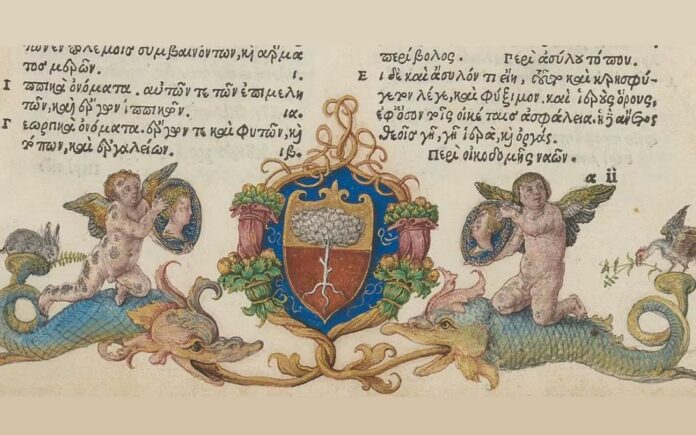 ἐν πολέμοις συμβαινόντων, καὶ ἅρμα
τος μερῶν. ι.
Ἱππικὰ ὀνόματα. αὐτῶν τε τῶν ἐπιμελη
τῶν, καὶ ἔργων ἱππικῶν. ια.
Γεωργικὰ ὀνόματα. ἔργων τε καὶ φυτῶν, καὶ
τόπων, καὶ ἐργαλείων. ιβ.
περίβολος. Περὶ ἀσύλου τόπου.
Εἰ δὲ καὶ ἄσυλόν τι εἴη, καὶ κρησφύ
γετον λέγε, καὶ φύξιμον. καὶ ὅρους,
ἐφ' ὅσον τοῖς οἰκέταις ἀσφάλεια. καὶ
θεοῖς γῆ, γῆ ἱερὰ, καὶ ὀργάς.
Περὶ οἰκοδομῆς ναῶν.
α ii